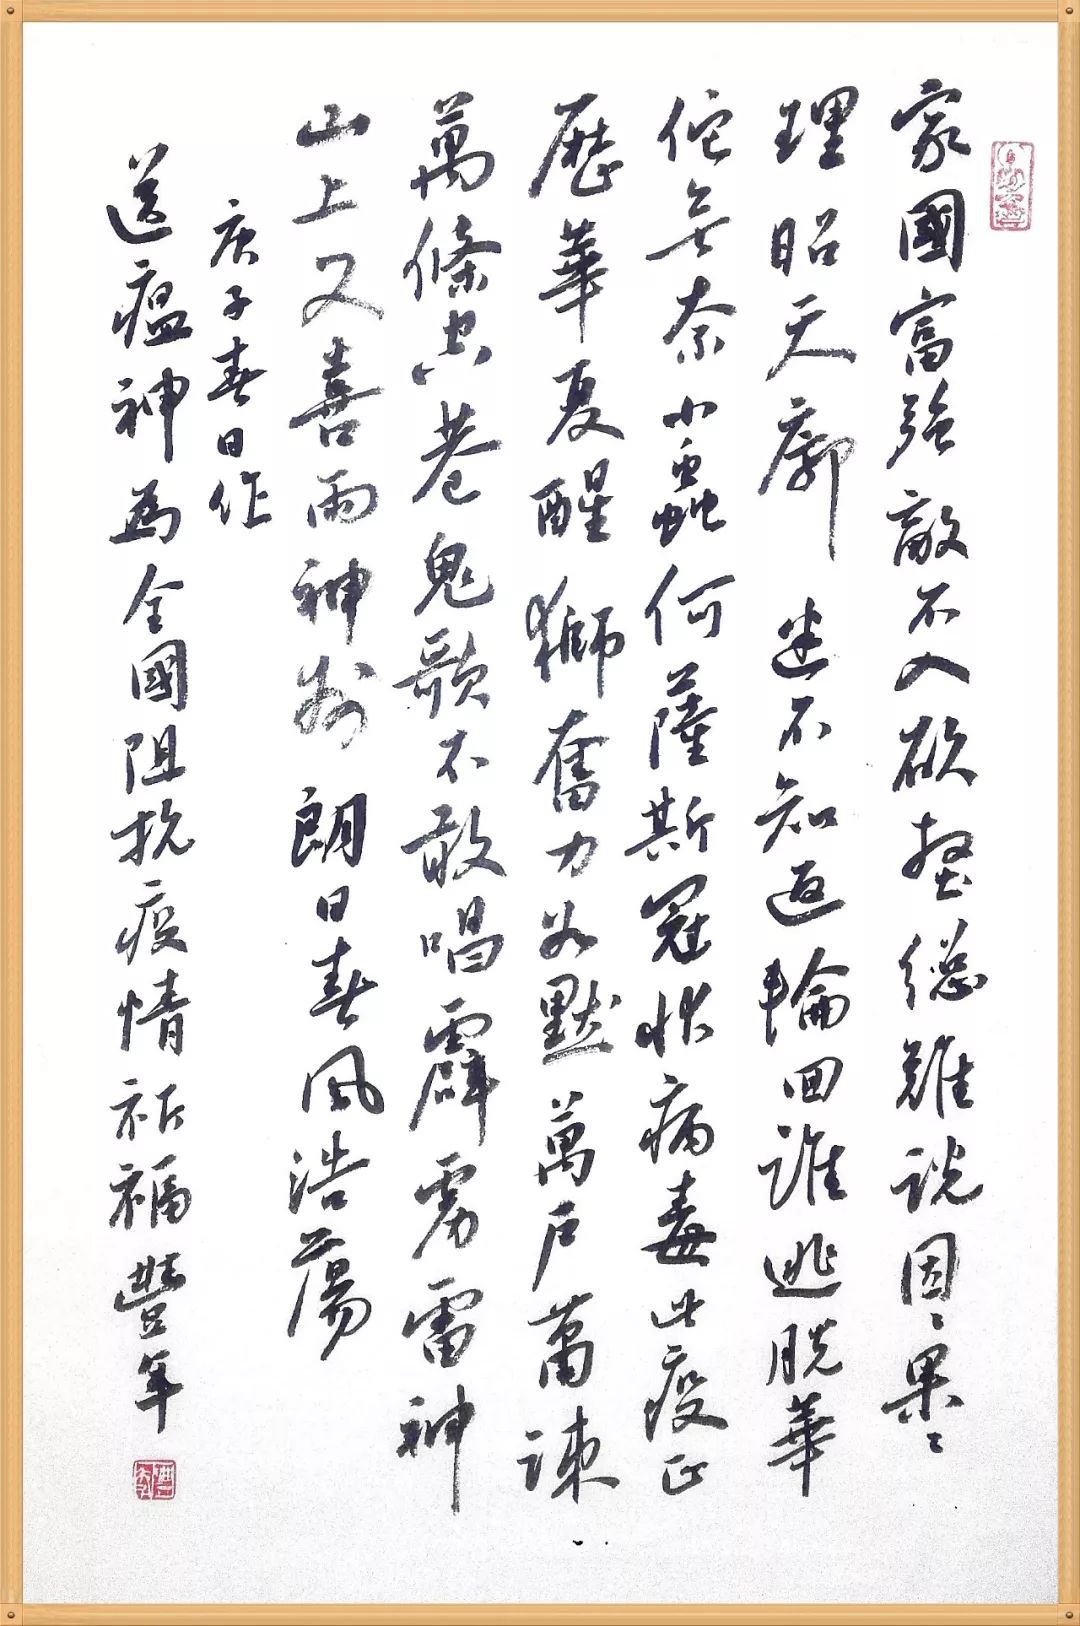 家國富強敵不入欲壑總難説因〻果〻
理昭天廓 迷不知返輪回誰逃脱華
佗無奈小蟲何薩斯冠狀病毒此疫正
歷華夏醒獅奮力默萬戶蕭疎
萬條空巷鬼歌不敢唱霹靂雷神
山上又喜雨神州 朗日春風浩蕩
庚子春日作
送瘟神為全國阻抗疫情祈福豐年